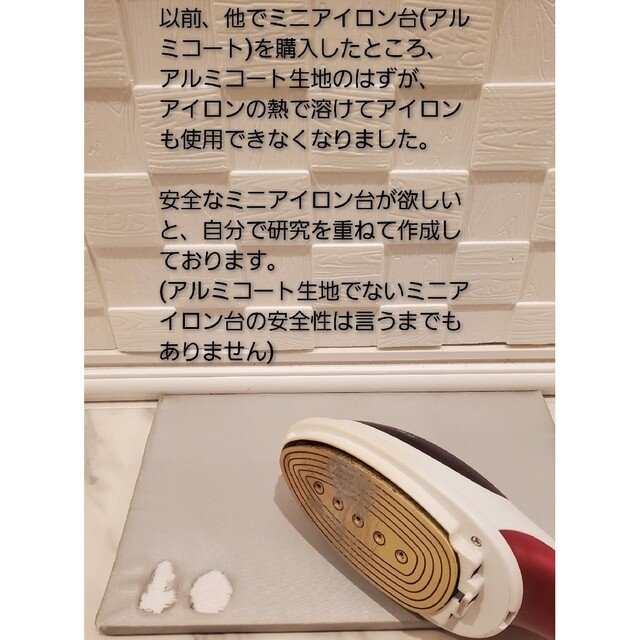 以前、他でミニアイロン台(アル
ミコート)を購入したところ、
アルミコート生地のはずが、
アイロンの熱で溶けてアイロン
も使用できなくなりました。
安全なミニアイロン台が欲しい
と、自分で研究を重ねて作成し
ております。
(アルミコート生地でないミニア
イロン台の安全性は言うまでも
ありません)